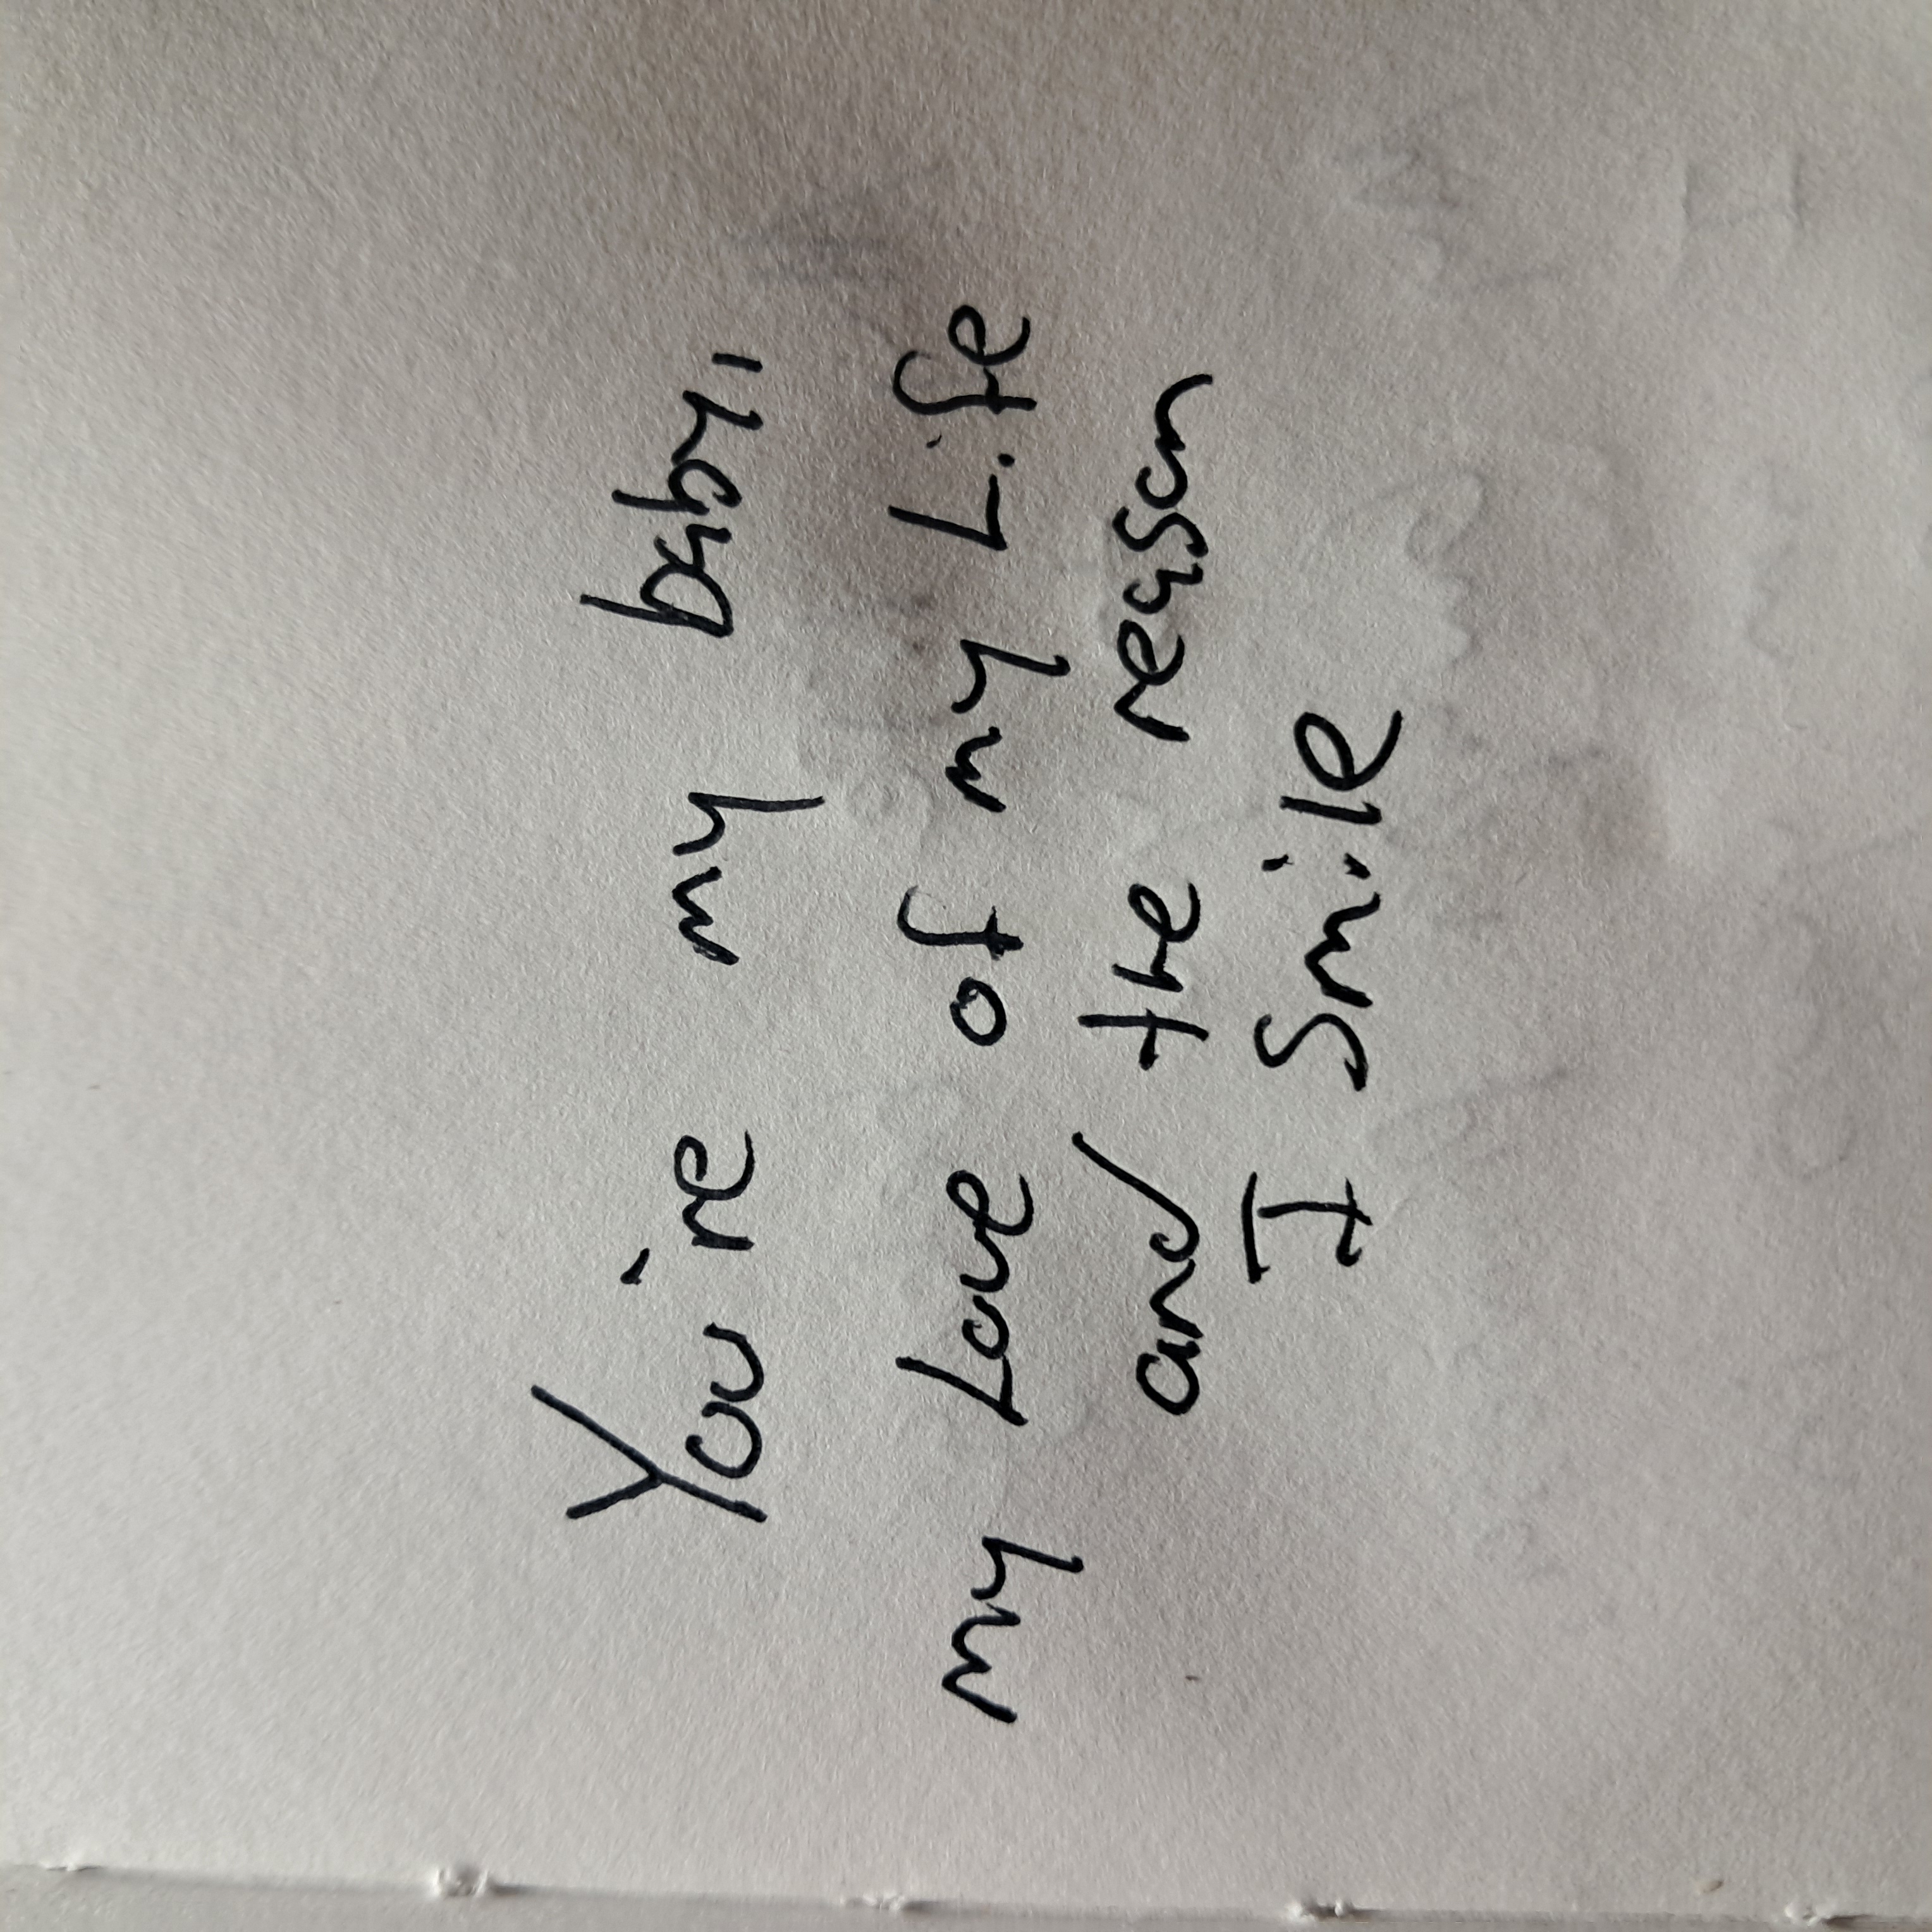 You're my baby,
my Love of my Life
and the reason
I Smile